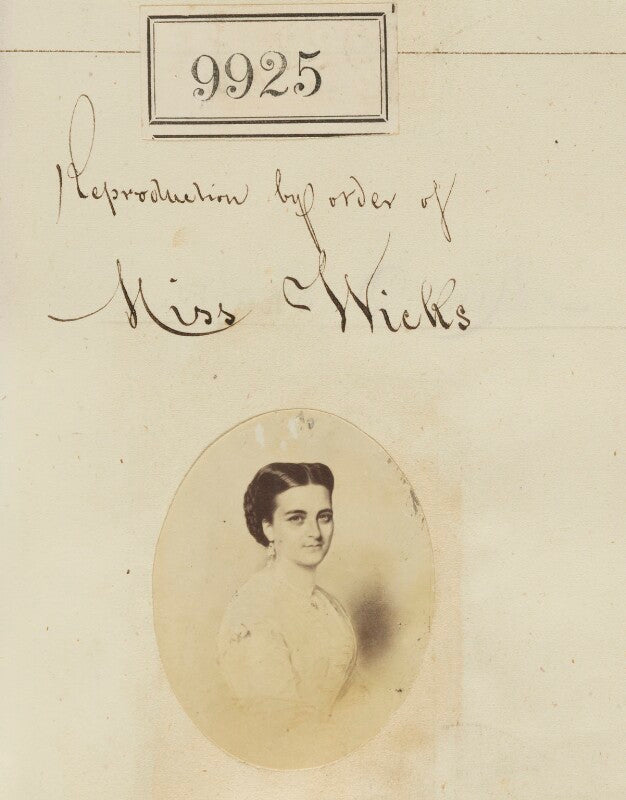 9925
Reproduction by order of
Miss Wicks